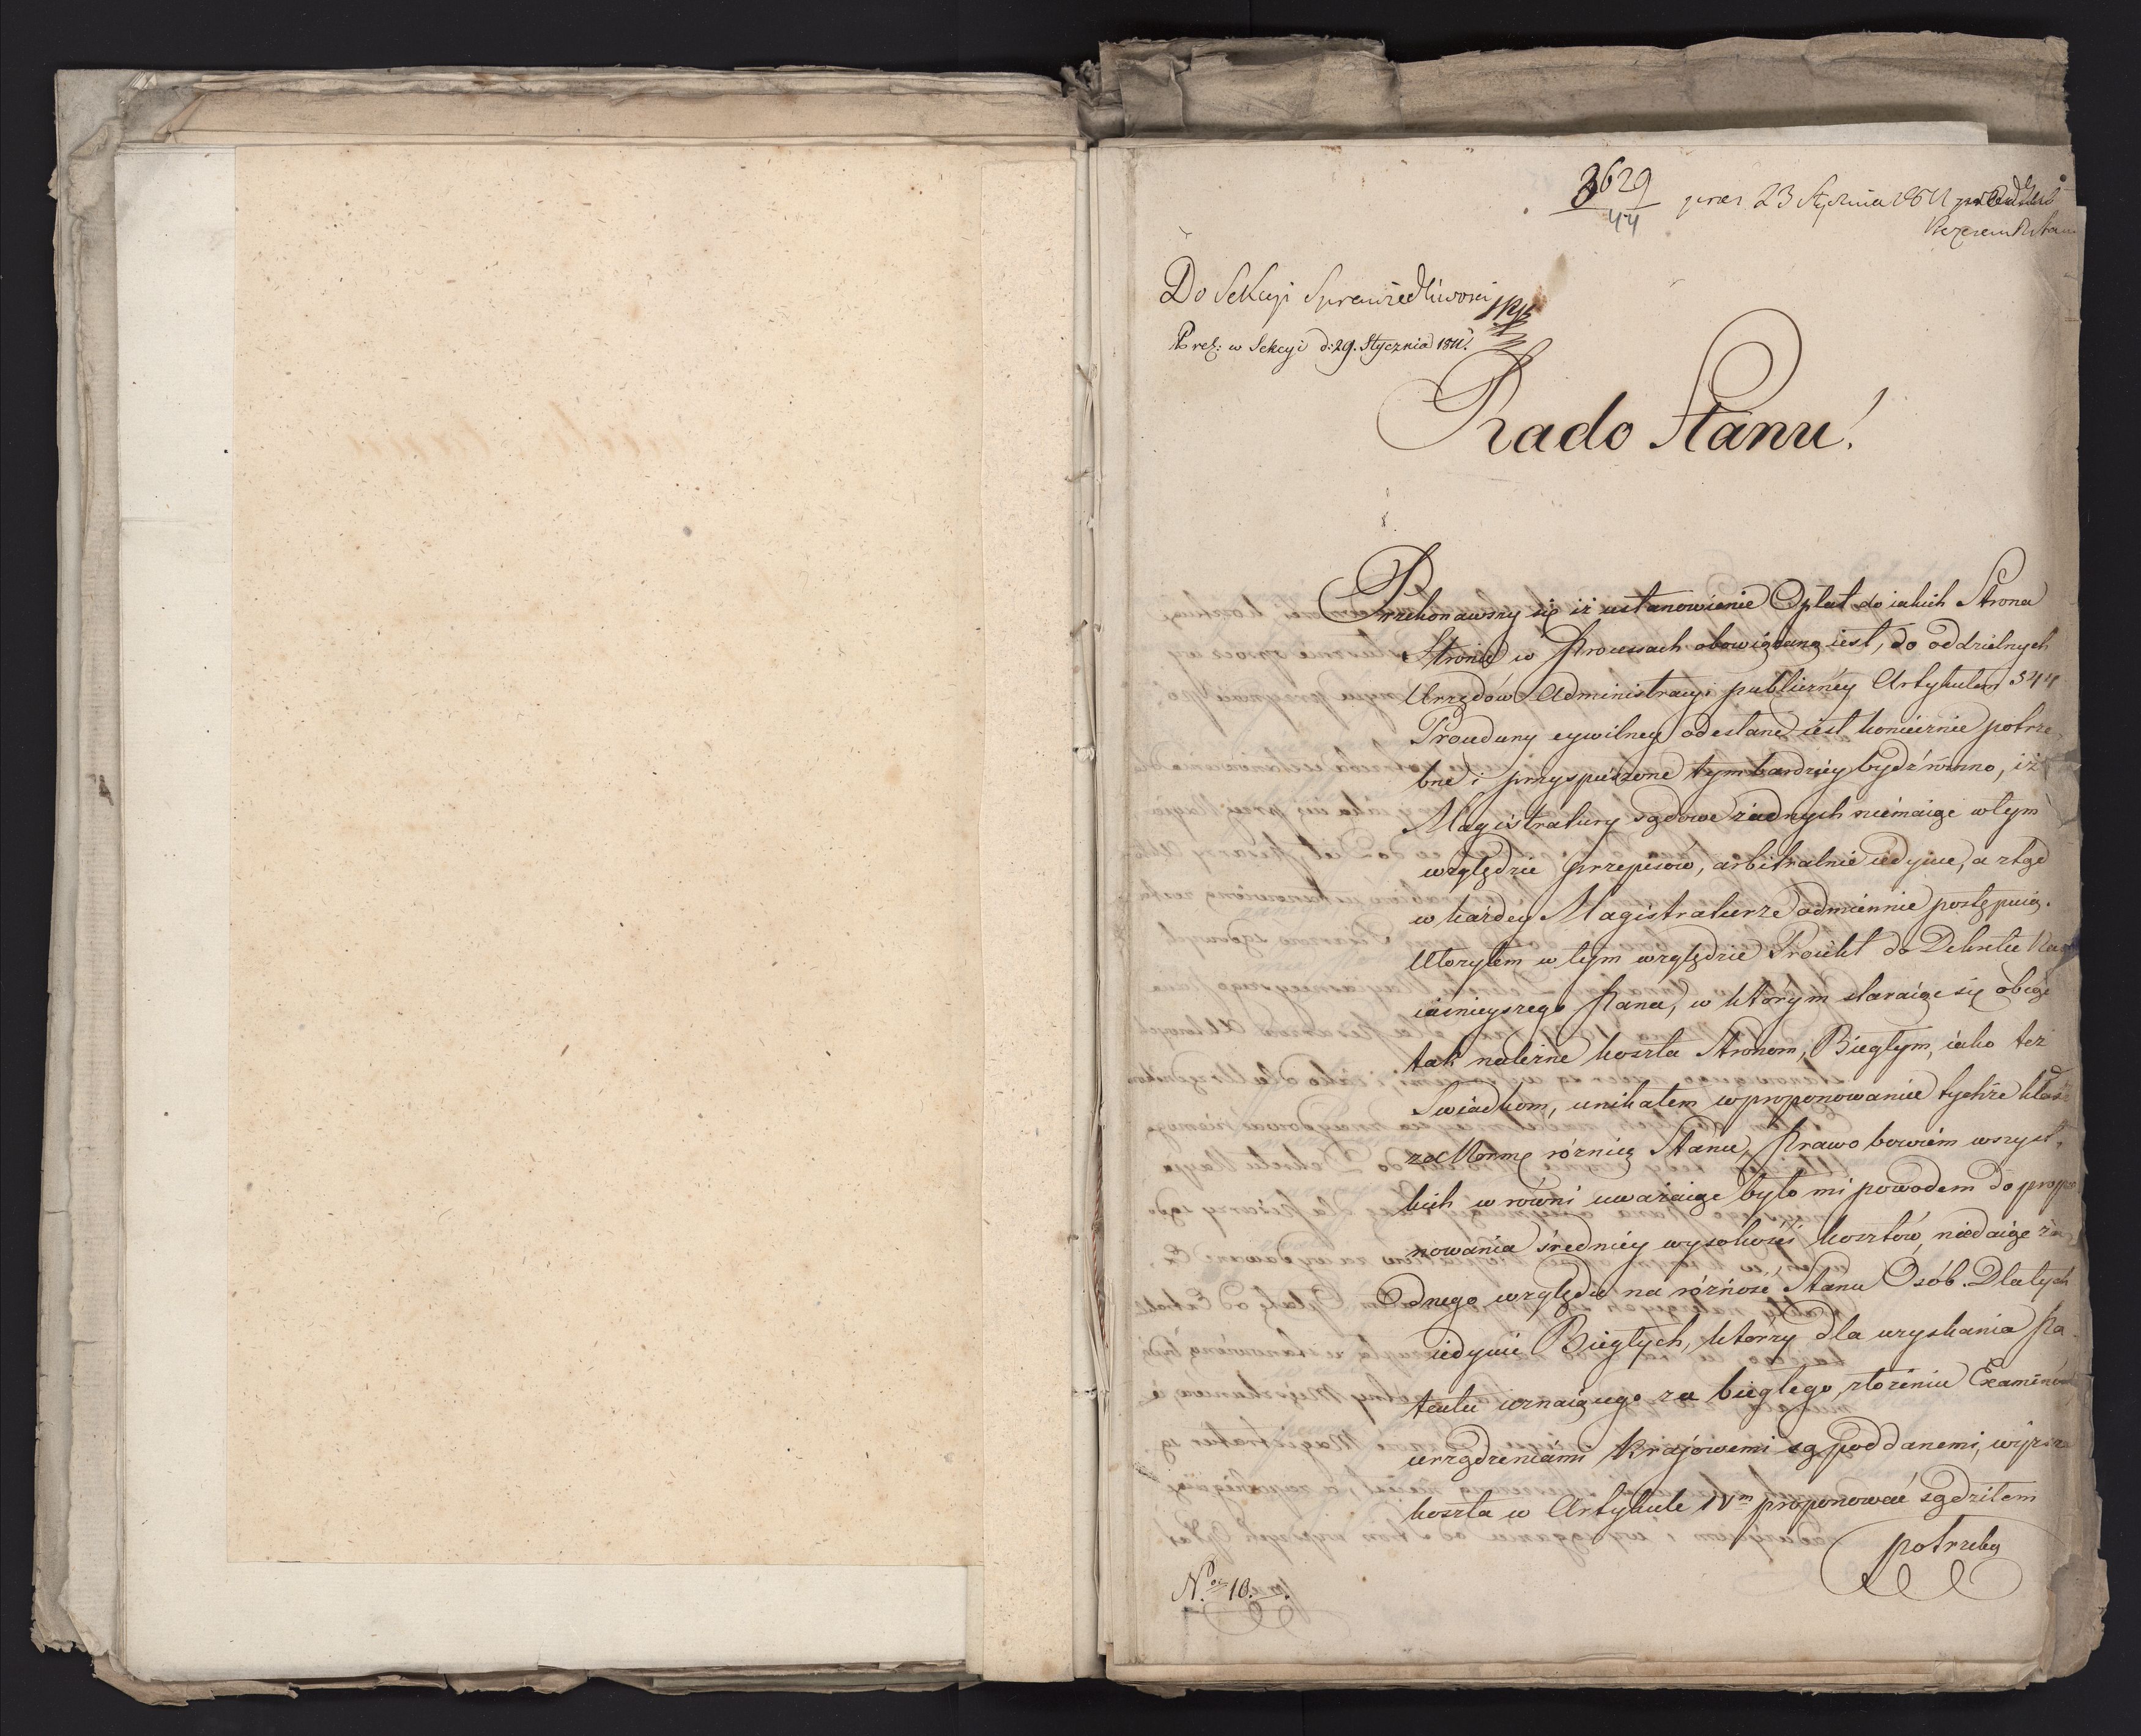 3629
44
23 Stycznia 1811
Do Sekcyi Sprawiedliwości
Prez: w Sekcyi d: 29. Stycznia 1811.
Rado Stanu!
Przekonawszy się iż ustanowienie Opłat do iakich Strona
Stronie w Processach obowiązaną iest, do oddzielnych
Urzędów Administracyi publiczney Artykułem 544
Procedury cywilney odesłane iest koniecznie potrze-
bne i przyspieszone tym bardziey bydź winno, iż
Magistratury sądowe żadnych niemaiąc w tym
względzie przepisów, arbitralnie iedynie, a ztąd
w każdey Magistraturze odmiennie postępuią.
Utorzyłem w tym względzie Proiekt do Dekretu Nay-
iaśnieyszego Pana, w którym staraiąc się obiąć
tak należne koszta Stronom, Biegłym, iako też
Swiadkom, unikałem w proponowaniu tychże kłaść
za Normę różnicę Stanu, Prawo bowiem wszyst-
kich w równi uważaiąc było mi powodem do propo-
nowania średniey wysokości kosztów, niedaiąc ża-
dnego względu na różność Stanu Osób. Dla tych
iedynie Biegłych, którzy dla uzyskania Pa-
tentu uznaiącego za biegłego, złożeniu Examinów
urządzeniami Kraiowemi są poddanemi, wyższe
koszta w Artykule IVm proponować sądziłem
potrzebą
No. 10.